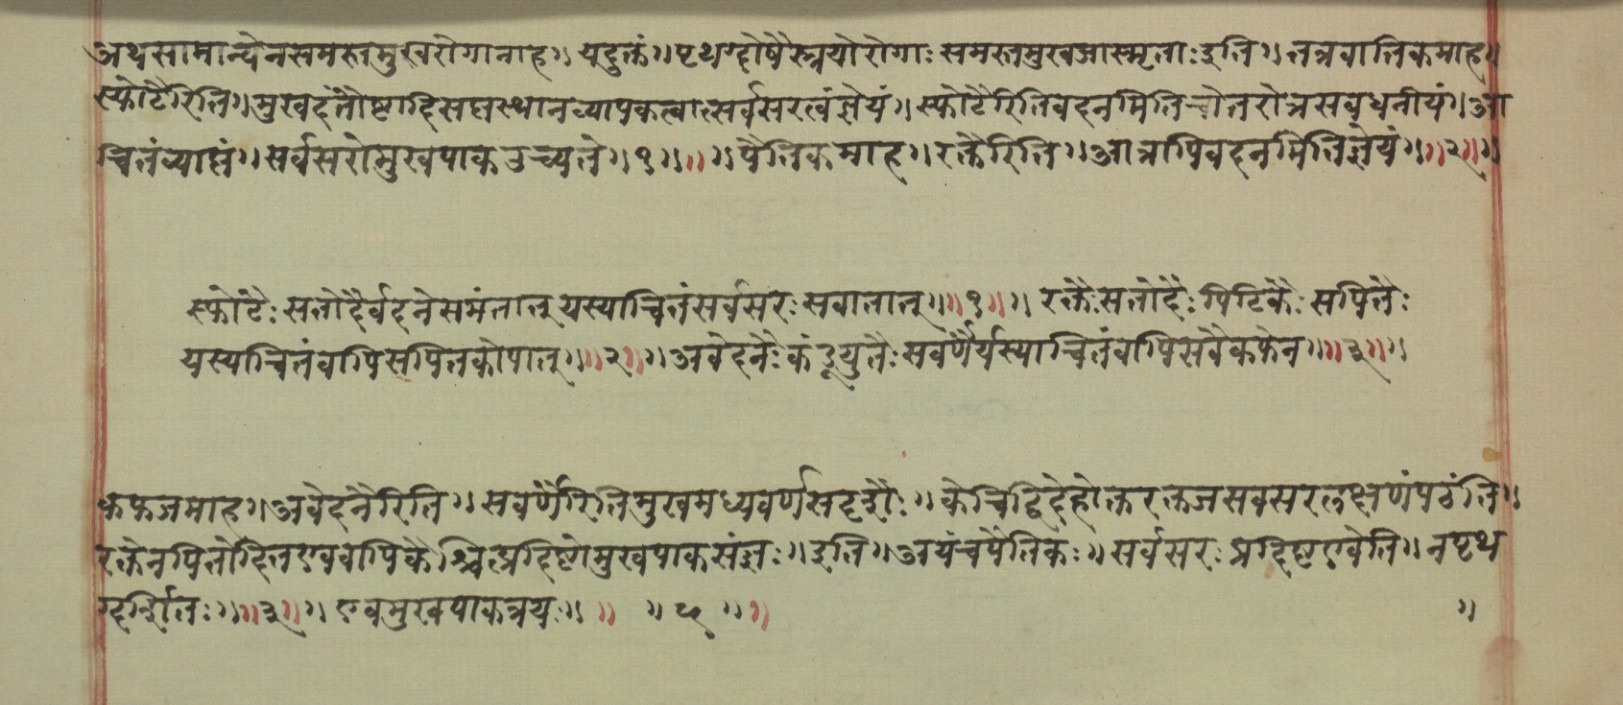 अथसामान्येनसमस्तमुखरोगानाह॥ यदुक्तं॥ पृथग्दोषैस्त्रयोरोगाः समस्तमुखजास्मृताः इति॥ तत्रवातिकमाह॥
स्फोटैरिति॥ मुखदंतौष्टादिसप्तस्थानव्यापकत्वात्सर्वसरत्वंज्ञेयं॥ स्फोटैरितिवदनमितिचोत्तरोत्रसंबधनीयं॥ आ
चितंव्याप्तं॥ सर्वसरोमुखपाकउच्यते॥ १॥ ॥ ॥ पैतिकमाह॥ रक्तैरिति॥ आत्रापिवदनमितिज्ञेयं॥ ॥२॥ ॥
स्फोटैः सतोदैर्वदनेसमंतात् यस्याचितंसर्वसरः सवातात्॥ ॥१॥ ॥ रक्तैः सतोदैः पिटिकैः सपितैः
यस्याचितंवापिसपितकोपात्॥ ॥२॥ ॥ अवेदनैः कंडूयुतैः सवर्णैर्यस्याचितंवापिसवैकफेन॥ ॥३॥ ॥
कफजमाह॥ अवेदनैरिति॥ सवर्णैरितिमुखमध्यवर्णसदृशैः॥ केचिद्विदेहोक्तरक्तजसवसरलक्षणंपठंति॥
रक्तेनपितोदितएववापिकैश्चित्प्रदिष्टोमुखपाकसंज्ञः॥ इति॥ अयंचपैतिकः॥ सर्वसरः प्रदिष्टएवेति॥ नपृथ
ग्दर्शितः॥ ॥३॥ ॥ एवमुखपाकत्रयः॥ ॥ ॥ ५ ॥ ॥ ॥